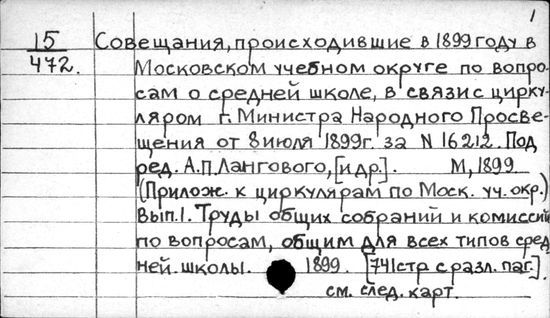 1
15 Совещания, происходившие в 1899 году в
472. Московском учебном округе по вопро-
сам о средней школе, в связи с цирку-
ляром г. Министра Народного Просве-
щения от 8 июля 1899г. за N 16212. Под
ред. А.П. Лангового, [и др.]. М, 1899.
(Прилож. к циркулярам по Моск. уч. окр.)
Вып. 1. Труды общих собраний и комиссий
по вопросам, общим для всех типов сред-
ней школы. 1899. [741 стр с разл. паг.].
см. след. карт.